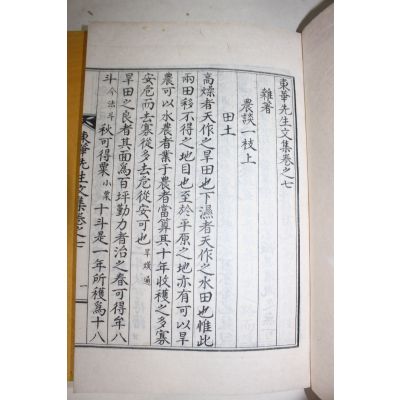 東華先生文集卷之七
雜著
農談一枝上
田土
高燥者天作之旱田也下濕者天作之水田也惟此
兩田移不得之地目也至於平原之地亦有可以旱
農可以水農者業于農者富算其十年收穫之多寡
安危而去寡從多去危從安可也 旱暵通
旱田之良者其面爲百坪勤力者治之春可得牟八
斗 今法斗 秋可得粟 小粟 十斗是一年所穫爲十八
東華先生文集卷之七 一